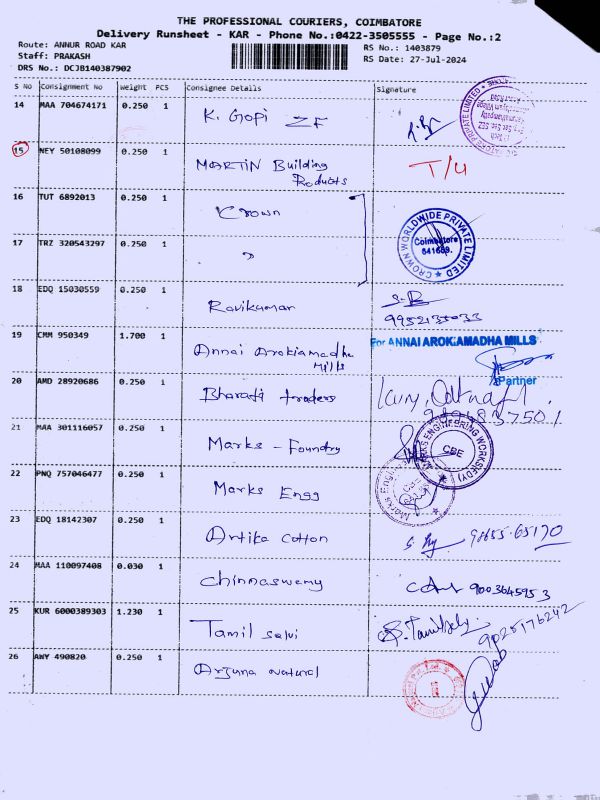 THE PROFESSIONAL COURIERS, COIMBATORE
Delivery Runsheet - KAR - Phone No.:0422-3505555 - Page No.:2
Route: ANNUR ROAD KAR RS No.: 1403879
Staff: PRAKASH RS Date: 27-Jul-2024
DRS No.: DCJB140387902
S No Consignment No Weight PCS Consignee Details Signature
14 MAA 704674171 0.250 1 K. Gopi ZF
15 NEY 50108099 0.250 1 MARTIN Building Products T/U
16 TUT 6892013 0.250 1 Crown
CROWN WORLDWIDE PRIVATE LIMITED
Coimbatore
641659.
17 TRZ 320543297 0.250 1 "
18 EDQ 15030559 0.250 1 Ravikumar
19 CMM 950349 1.700 1 Annai Arokiamadha Mills
For ANNAI AROKIAMADHA MILLS
Partner
20 AMD 28920686 0.250 1 Bharati traders
21 MAA 301116057 0.250 1 Marks - Foundry
MARKS ENGINEERING WORKS(FDY)
CBE
22 PNQ 757046477 0.250 1 Marks Engg
23 EDQ 18142307 0.250 1 Artika cotton 98655-65170
24 MAA 110097408 0.030 1 Chinnaswamy 9003645953
25 KUR 6000389303 1.230 1 Tamil selvi 9025176242
26 ANY 490820 0.250 1 Arjuna natural